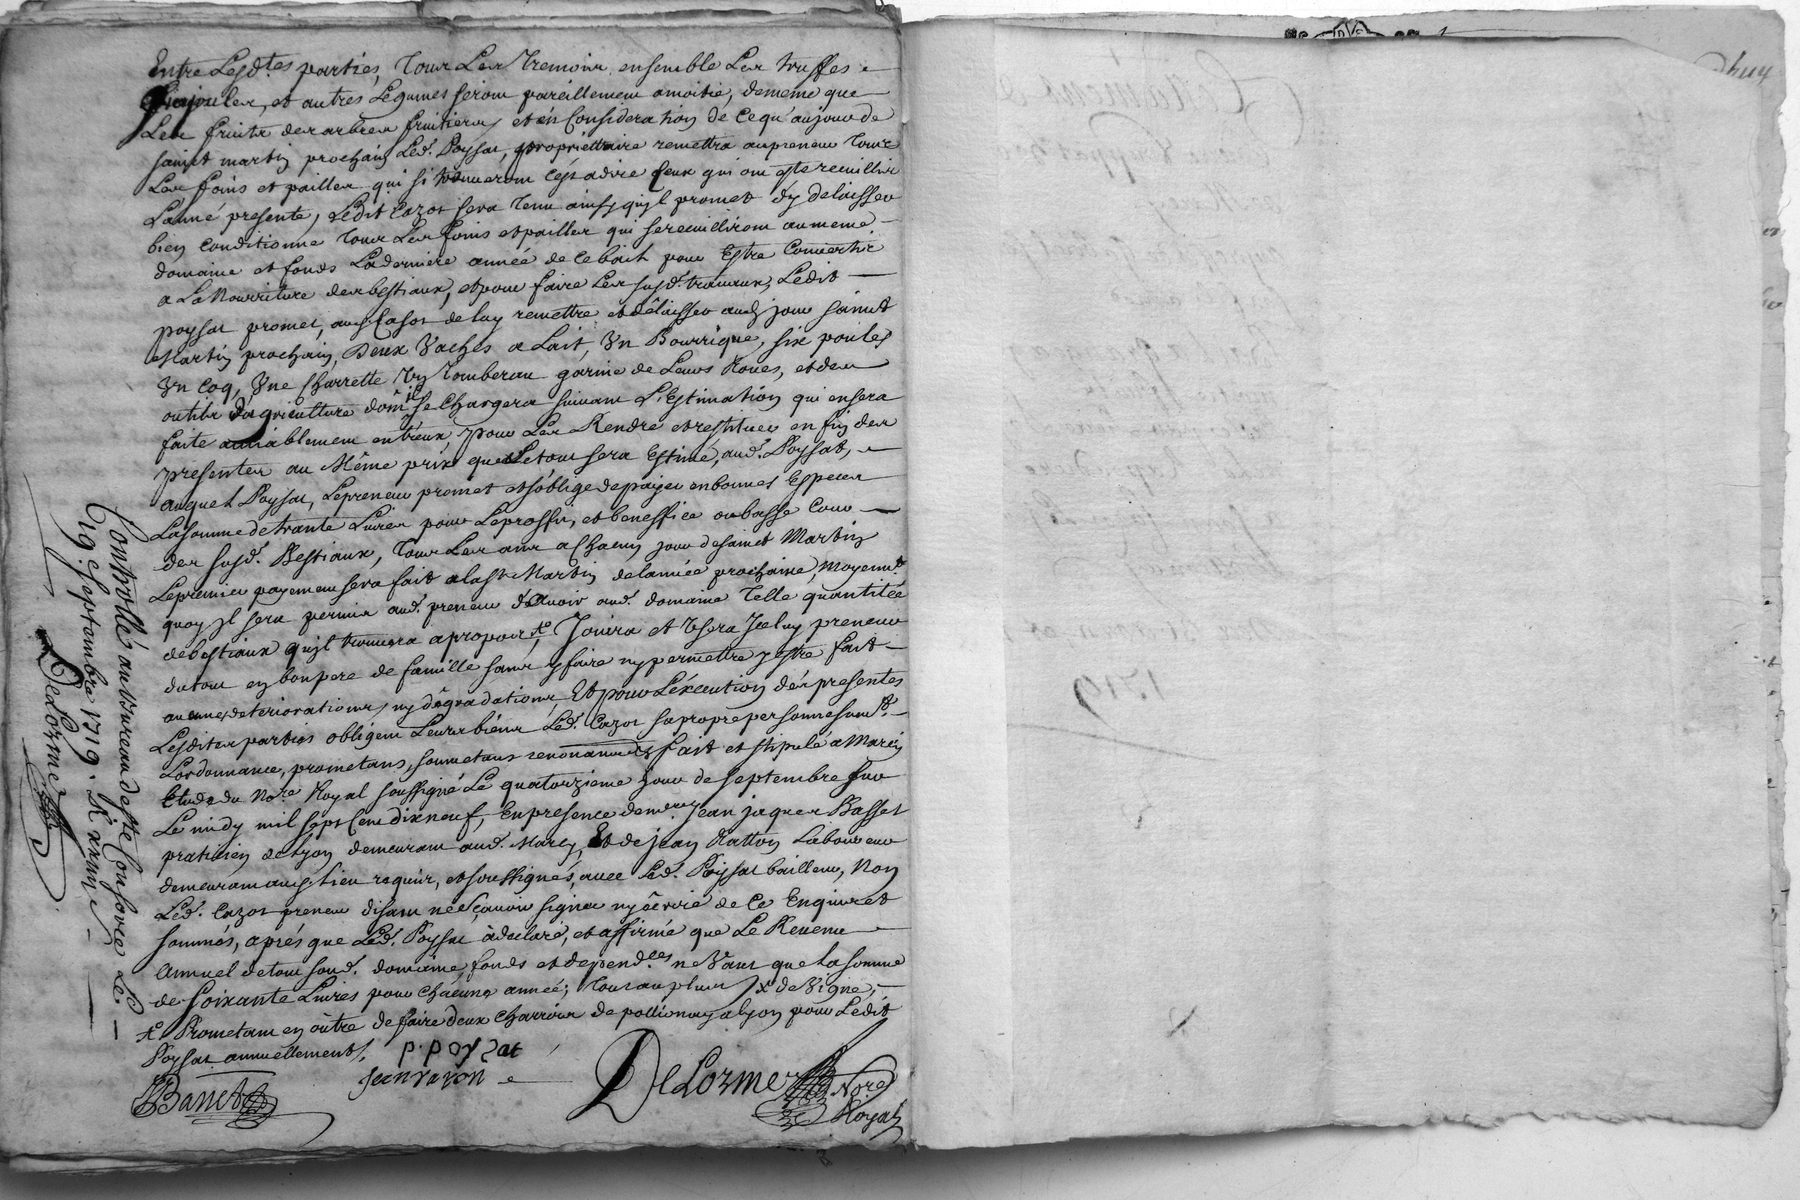 Entre Lesd.tes parties, Tous Les Tremois ensemble Les truffes
fiajoules, et autres Legumes seront pareillement amoitié, dememe que
Les fruits des arbres fruitiers, et en Consideration de ce qu'aujour de
saint martin prochain Led. Poysat, proprietaire remettra au preneur Tous
Les foins et pailles qui si trouveront c'est adire Ceux qui ont este recuillis
Lanné presente, Ledit Cazot sera Tenu ainsy qu'yl promet d'y delaisser
bien Conditionné Tous Les foins et pailles qui se recuilliront au meme
domaine et fonds La derniere année de ce bail pour Estre Convertis
a La Nourriture des bestiaux, et pour faire Les susd. travaux, Ledit
poysat promet, aud. Casot de luy remettre et délaisser aud. jour sainct
Martin prochain, Deux Vaches a Lait, Un Bourrique, six poules
Un Coq, Une Charrette Un Tombereau garnie de Leurs Roues, et des
outils D'agriculture dont il se Chargera suivant L'Estimation qui en sera
faite amiablement entreux, pour Les Rendre et restituer en fin des
presentes au Même prix que Le tout sera Estimé, aud. Poysat,
auquel Poysat, Le preneur promet et s'oblige de payer en bonnes Especes
La somme de trante Livres pour Le proffit, et beneffice ou basse Cour
des susd. Bestiaux, Tous Les ans a Chacun jour de sainct Martin
Le premier payement sera fait a la St Martin de lannée prochaine, Moyenn.t
quoy yl sera permis aud. preneur d'avoir aud. domaine Telle quantitée
de bestiaux qu'yl trouvera apropos, Jouira et Usera Jceluy preneur
du tout en bon pere de famille sans y faire ny permettre y estre fait
aucunes deteriorations, ny dégradations, Et pour L'éxecution dés presentes
Lesdites parties obligent Leurs biens Led. Cazot sa propre personne suiv.t
L'ordonnance, prometans, soumetans renonçans fait et stipulé a Marcy
Etude du No.re Royal soussigné Le quatorzieme jour de septembre sur
Le midy mil sept Cent dix neuf, En presence de me Jean jaques Basset
praticien de Lyon demeurant aud. Marcy, Et de jean Ratton Laboureur
demeurant aud. lieu requis, et soussignés, avec Led. Poysat bailleur, Non
Led. Cazot preneur disant ne Sçavoir signer ny écrire de Ce Enquis et
sommés, aprés que Led. Poysat à declaré, et affirmé que Le Revenu
Annuel de tout sond. domaine, fonds et depend.ces ne Vaut que la somme
de soixante Livres pour Chacune année; Tout au plus de Vigne,
Prometant en oûtre de faire deux charrois de pollionay a lyon pour Ledit
Poysat annuellement.
P. POYZat
Jean raton
Basset
DeLorme
No.re
Royal
Controllé au bureau de ste Consorce Le
dix septembre 1719.
DeLorme
1719